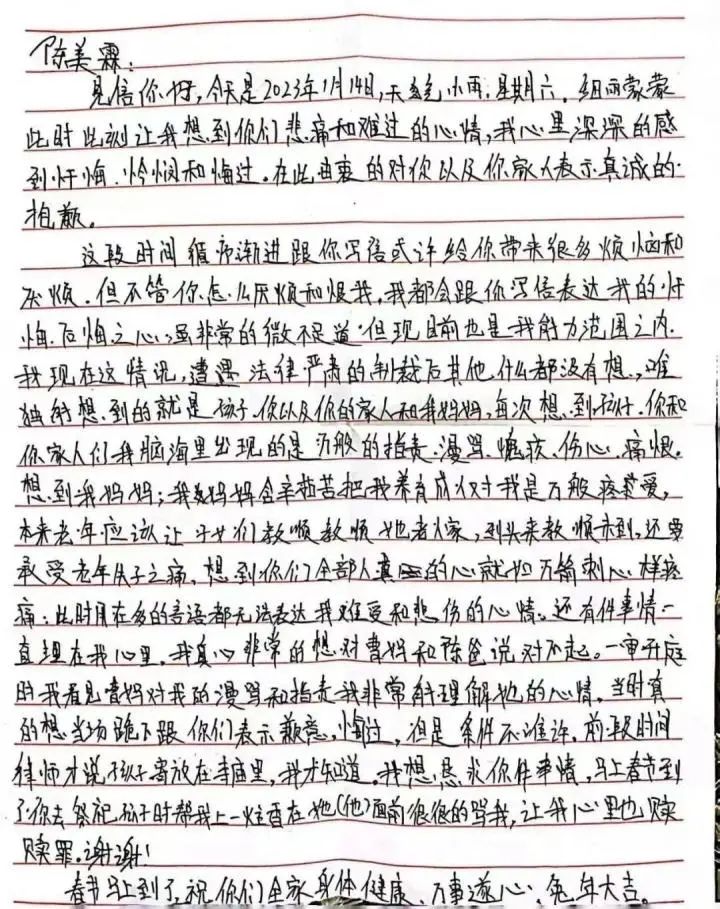 陈美霖:
见信你好,今天是2023年1月14日,天气小雨.星期六.细雨蒙蒙
此时此刻让我想到你们悲痛和难过的心情,我心里深深的感
到忏悔、怜悯和悔过.在此由衷的对你以及你家人表示真诚的
抱歉。
这段时间循序渐进跟你写信或许给你带来很多烦恼和
厌烦.但不管你怎么厌烦和恨我.我都会跟你写信表达我的忏
悔.后悔之心.虽非常的微不足道 但现目前也是我能力范围之内.
我现在这情况,遭遇法律严肃的制裁后其他什么都没有想.,唯
独能想到的就是孩子.你以及你的家人和我妈妈,每次想到孩子.你和
你家人们我脑海里出现的是万般的指责、漫骂、愧疚、伤心、痛恨.
想到我妈妈;我妈妈含辛茹苦把我养育成人对我是万般疼爱,
本来老年应该让子女们教顺教顺她老人家,到头来教顺未到,还要
承受老年失子之痛.想到你们全部人真的心就如万箭刺心一样疼
痛:此时用在多的言语都无法表达我难受和悲伤的心情。还有件事情一
直埋在我心里.我真心非常的想对曹妈和陈爸说对不起。一审开庭
时我看见曹妈对我的漫骂和指责我非常能理解她的心情,当时真
的想当场跪下跟你们表示歉意,悔过,但是条件不准许.前段时间
律师才说孩子寄放在寺庙里,我才知道.我想恳求你件事情,马上春节到
了你去祭祀孩子时帮我上一炷香在她(他)面前狠狠的骂我,让我心里也赎
赎罪.谢谢!
春节马上到了,祝你们全家身体健康、万事遂心、兔年大吉。